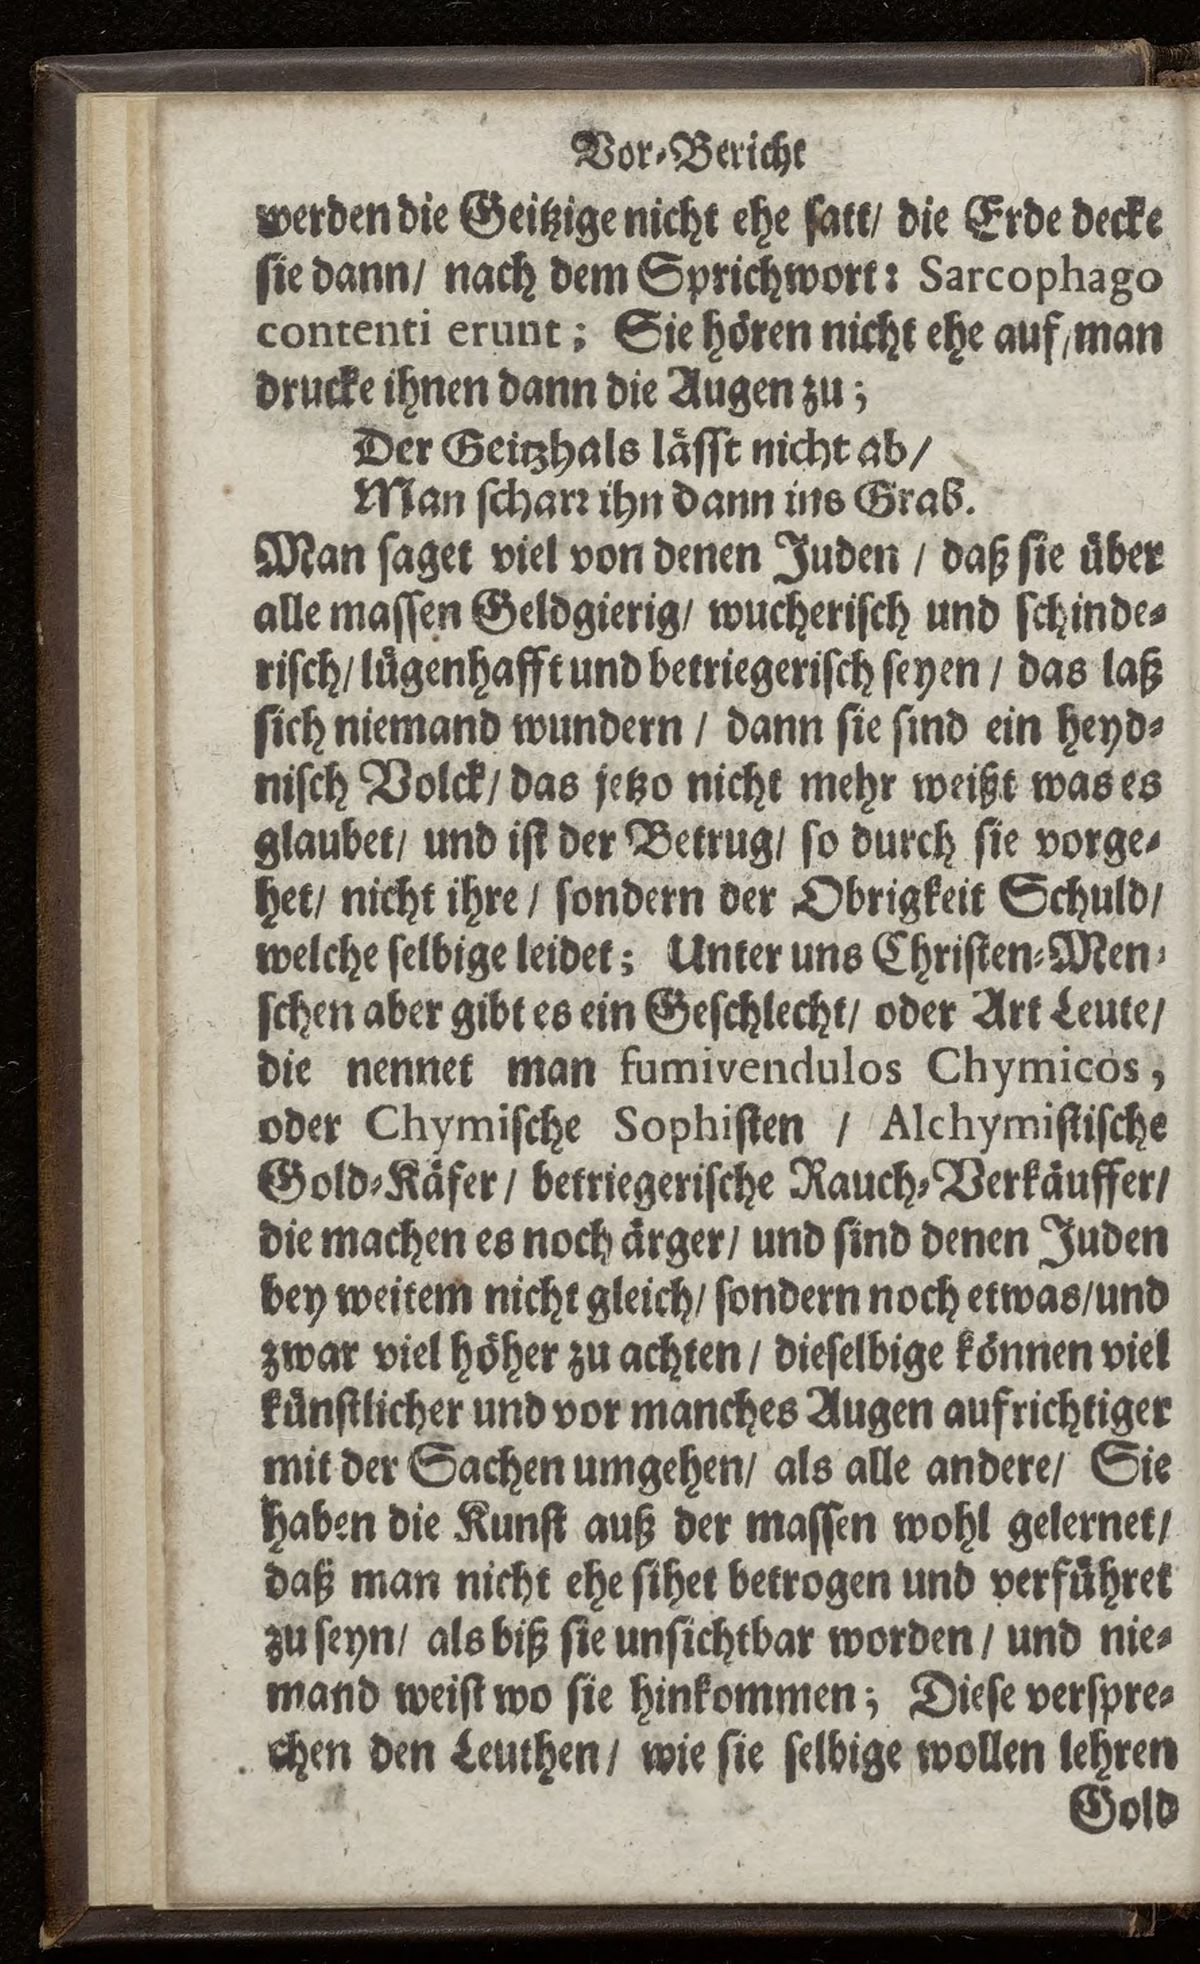 Vor-Bericht
werden die Geitzige nicht ehe ſatt/ die Erde decke
ſie dann/ nach dem Sprichwort: Sarcophago
contenti erunt; Sie hören nicht ehe auf/man
drucke ihnen dann die Augen zu;
Der Geitzhals läſſt nicht ab/
Man ſcharꝛ ihn dann ins Grab.
Man ſaget viel von denen Juden / daß ſie über
alle maſſen Geldgierig/ wucheriſch und ſchinde-
riſch/ lügenhafft und betriegeriſch ſeyen / das laß
ſich niemand wundern / dann ſie ſind ein heyd-
niſch Volck/ das jetzo nicht mehr weißt was es
glaubet/ und iſt der Betrug/ ſo durch ſie vorge-
het/ nicht ihre / ſondern der Obrigkeit Schuld/
welche ſelbige leidet; Unter uns Chriſten-Men-
ſchen aber gibt es ein Geſchlecht/ oder Art Leute/
die nennet man fumivendulos Chymicos,
oder Chymiſche Sophiſten / Alchymiſtiſche
Gold-Käfer / betriegeriſche Rauch-Verkäuffer/
die machen es noch ärger/ und ſind denen Juden
bey weitem nicht gleich/ ſondern noch etwas/und
zwar viel höher zu achten / dieſelbige können viel
künſtlicher und vor manches Augen aufrichtiger
mit der Sachen umgehen/ als alle andere/ Sie
haben die Kunſt auß der maſſen wohl gelernet/
daß man nicht ehe ſihet betrogen und verführet
zu ſeyn/ als biß ſie unſichtbar worden / und nie-
mand weiſt wo ſie hinkommen; Dieſe verſpre-
chen den Leuthen/ wie ſie ſelbige wollen lehren
Gold